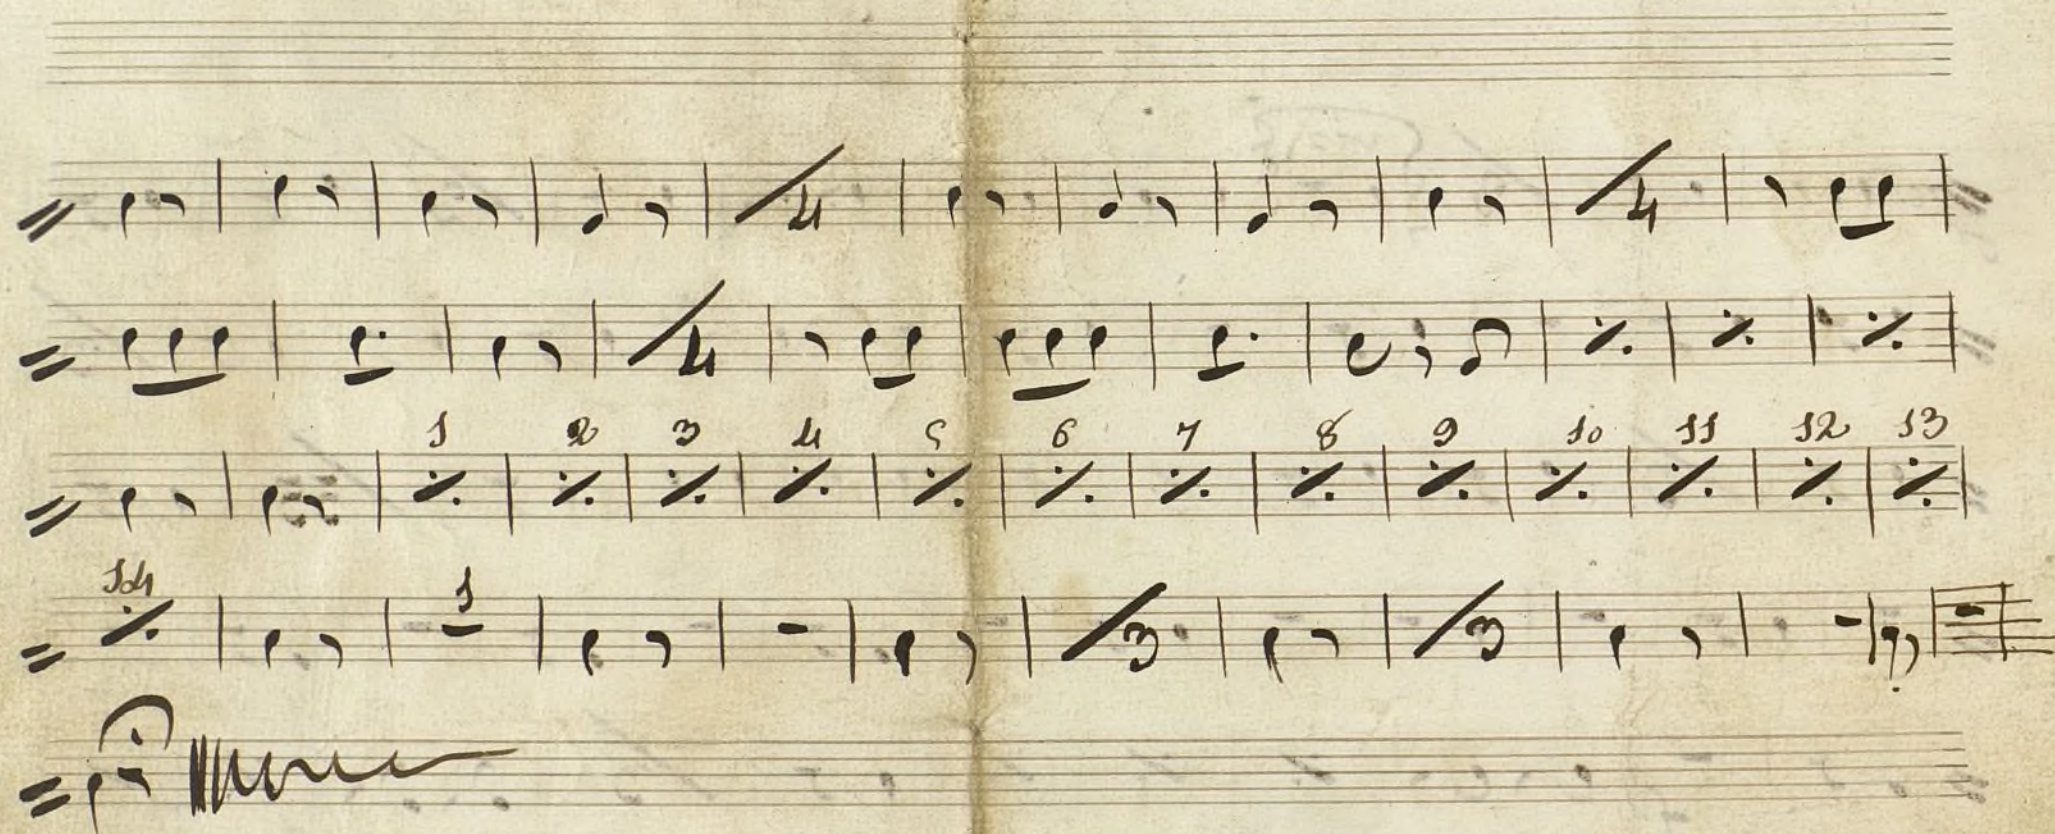 4 4
4
1 2 3 4 5 6 7 8 9 10 11 12 13
14 1 3 3